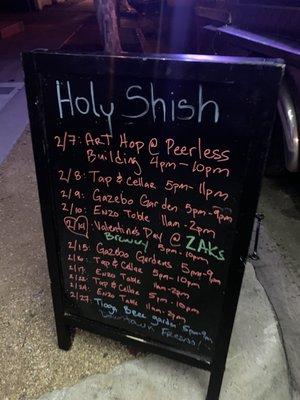 Holy Shish
2/7: Art Hop @ Peerless
Building 4pm-10pm
2/8: Tap & Cellar 5pm-11pm
2/9: Gazebo Garden 5pm-9pm
2/10: Enzo Table 11am-2pm
2/14: Valentine's Day @ ZAKs
Brewery 5pm-10pm
2/15: Gazebo Gardens 5pm-9pm
2/16: Tap & Cellar 5pm-10pm
2/17: Enzo Table 11am-2pm
2/22: Tap & Cellar 5pm-10pm
2/24: Enzo Table 11am-2pm
2/27: Tioga Beer garden 5pm-9pm
Downtown Fresno!